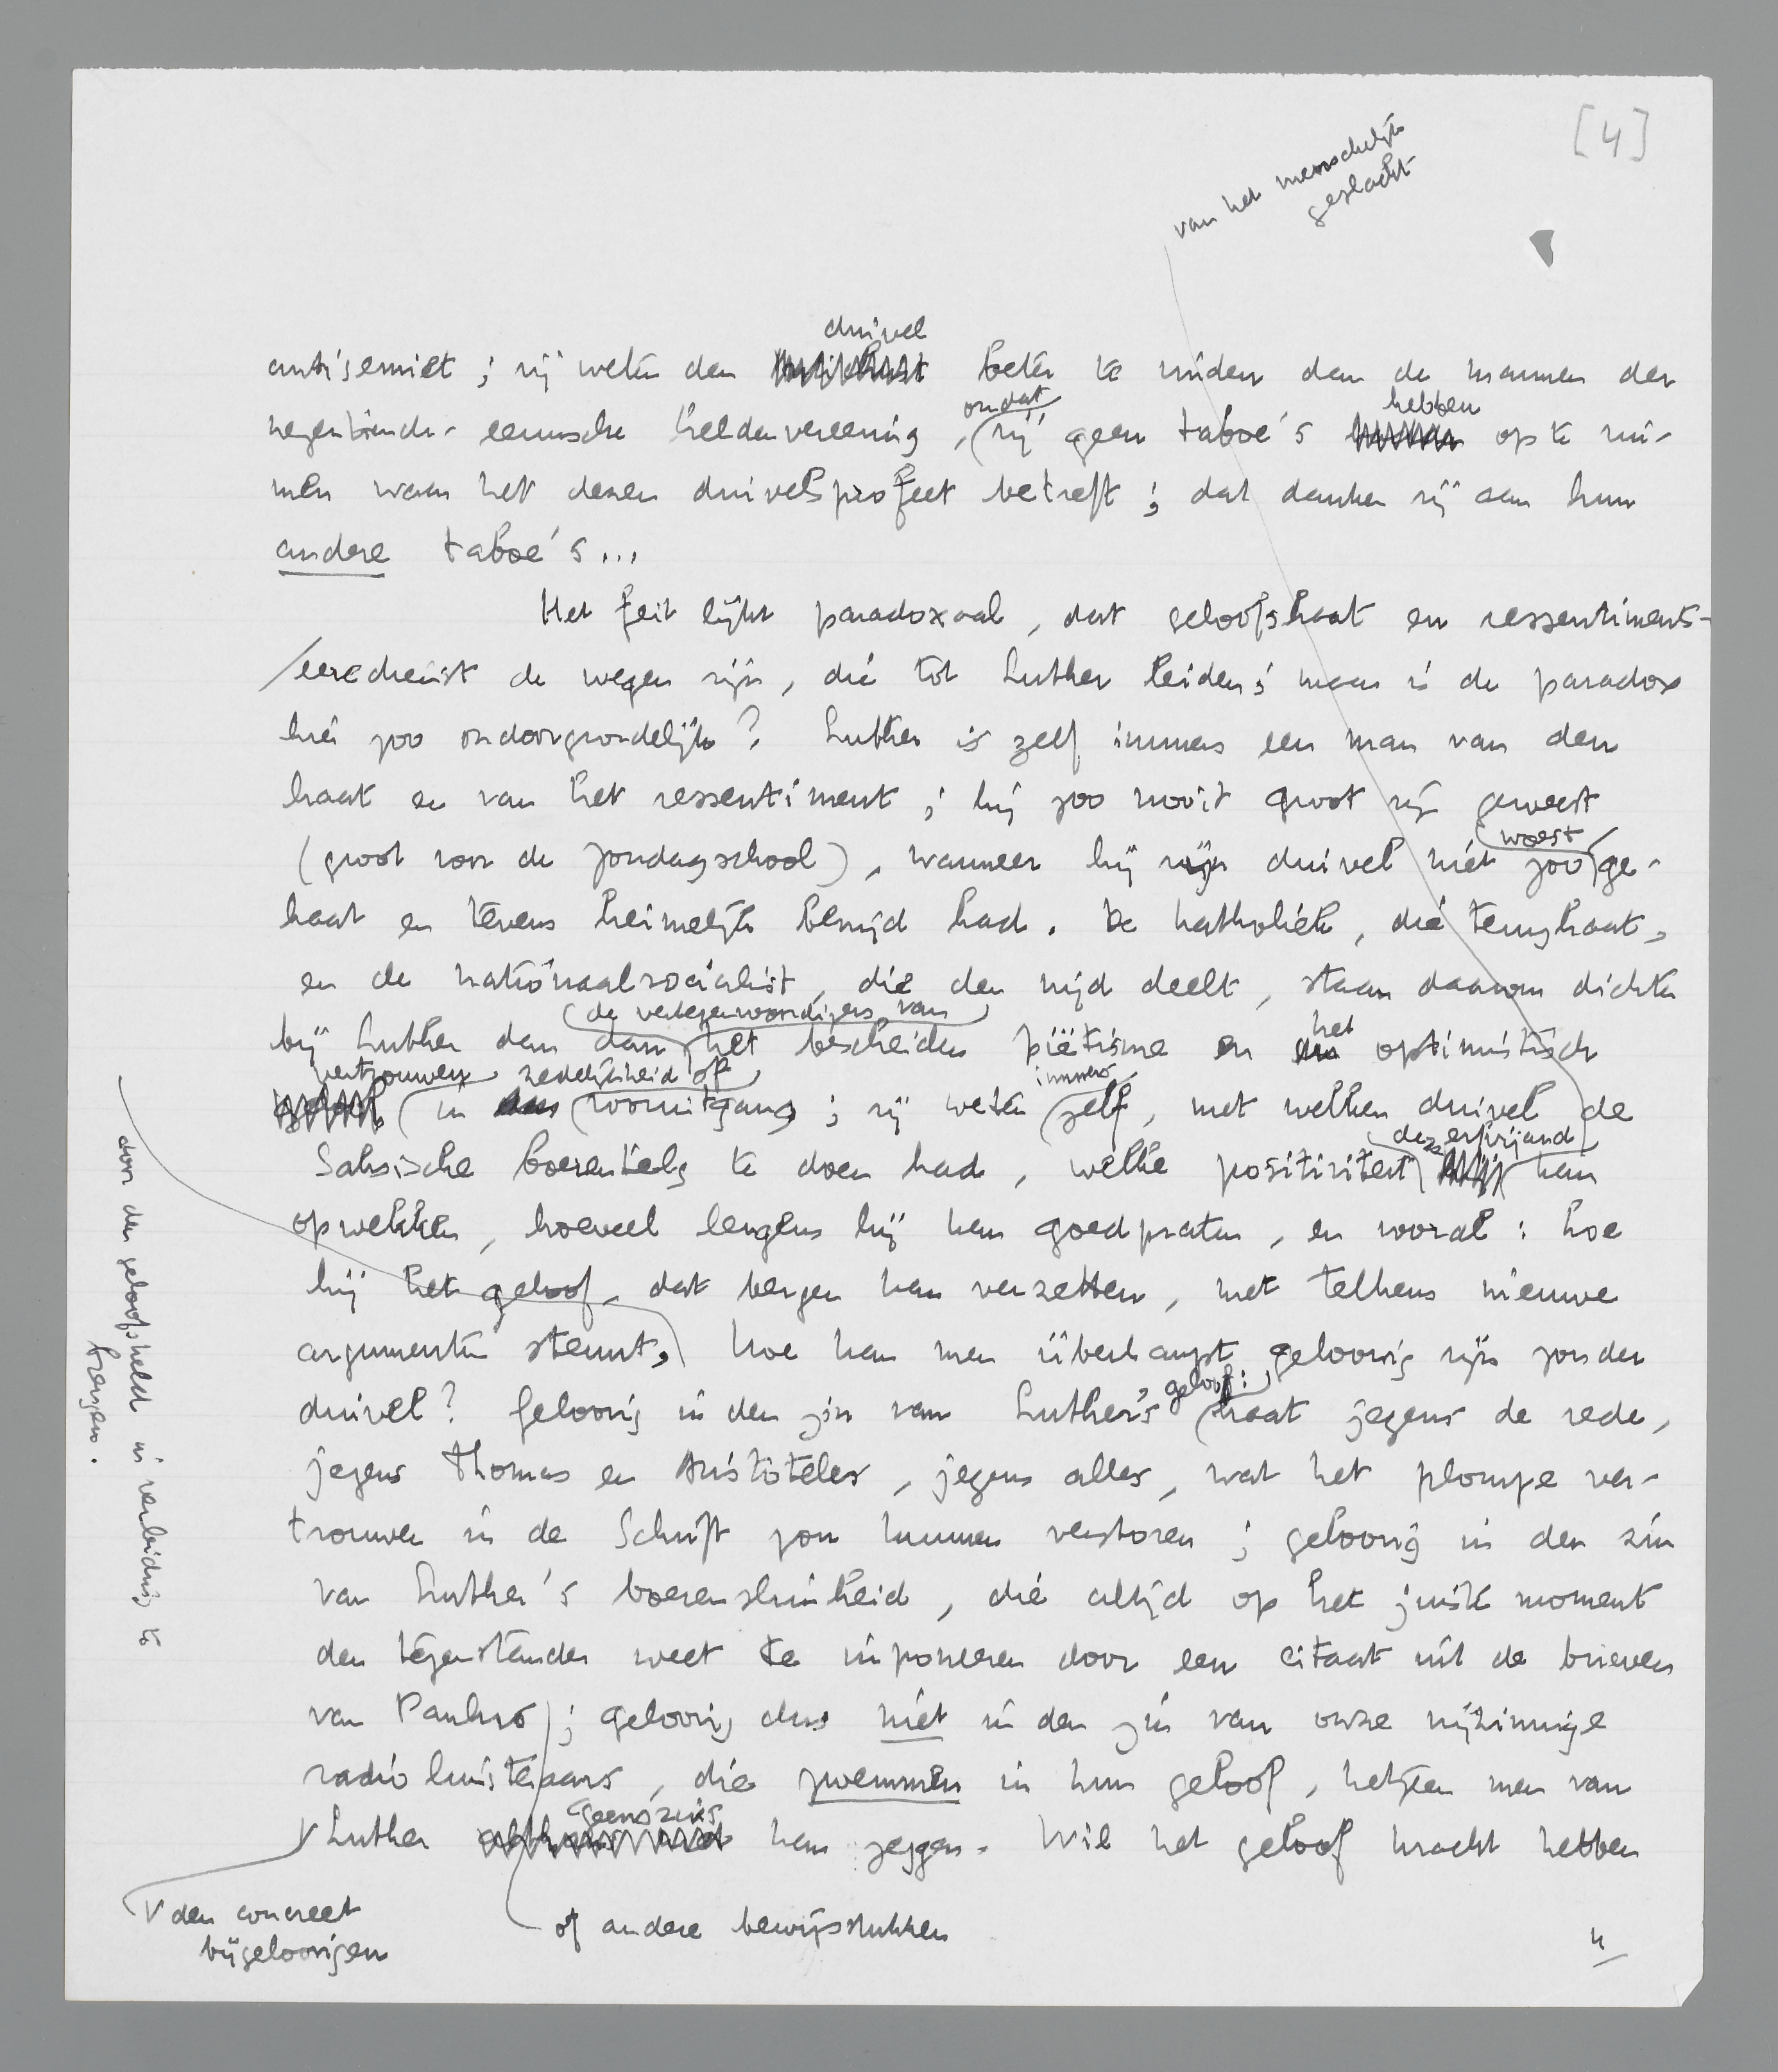 [4]
van het menschelijk
geslacht
duivel
antisemiet ; zij weten den beter te vinden dan de mannen der
omdat hebben
negentiende- eeuwsche heldenvereering , zij geen taboe's op te rui-
men waar het dezen duivelsprofeet betreft ; dat danken zij aan hun
andere taboe's ...
Het feit lijkt paradoxaal , dat geloofshaat en ressentiments-
eeredienst de wegen zijn , die tot Luther leiden ; maar is de paradox
hier zoo ondoorgrondelijk ? Luther is zelf immers een man van den
haat en van het ressentiment ; hij zoo nooit groot zijn geweest
woest
(groot voor de zondagschool) , wanneer hij zijn duivel niet zoo ge-
haat en tevens heimelijk benijd had . De katholiek , die terughaat ,
en de nationaalsocialist , die den nijd deelt , staan daarom dichter
de vertegenwoordigers van het
bij Luther dan dan het bescheiden piëtisme en optimistisch
vertrouwen zedelijkheid of immers
in vooruitgang ; zij weten zelf , met welken duivel de
deze erfvijand
Saksische boerentelg te doen had , welke positiviteit kan
opwekken , hoeveel leugens hij kan goedpraten , en vooral : hoe
hij het geloof , dat bergen kan verzetten , met telkens nieuwe
argumenten steunt , hoe kan men überhaupt geloovig zijn zonder
geloof :
duivel ? Geloovig in den zin van Luther's haat jegens de rede ,
jegens Thomas en Aristoteles , jegens alles , wat het plompe ver-
trouwen in de Schrift zou kunnen verstoren ; geloovig in den zin
van Luther's boerensluwheid , die altijd op het juiste moment
den tegenstander weet te imponeeren door een citaat uit de brieven
van Paulus ; geloovig dus niet in den zin van onze vrijzinnige
radioluisteraars , die zwemmen in hun geloof , hetgeen men van
geenszins
Luther kan zeggen . Wil het geloof kracht hebben
den concreet
bijgeloovigen
of andere bewijsstukken
4
door den geloofsheld in verleiding te
brengen .